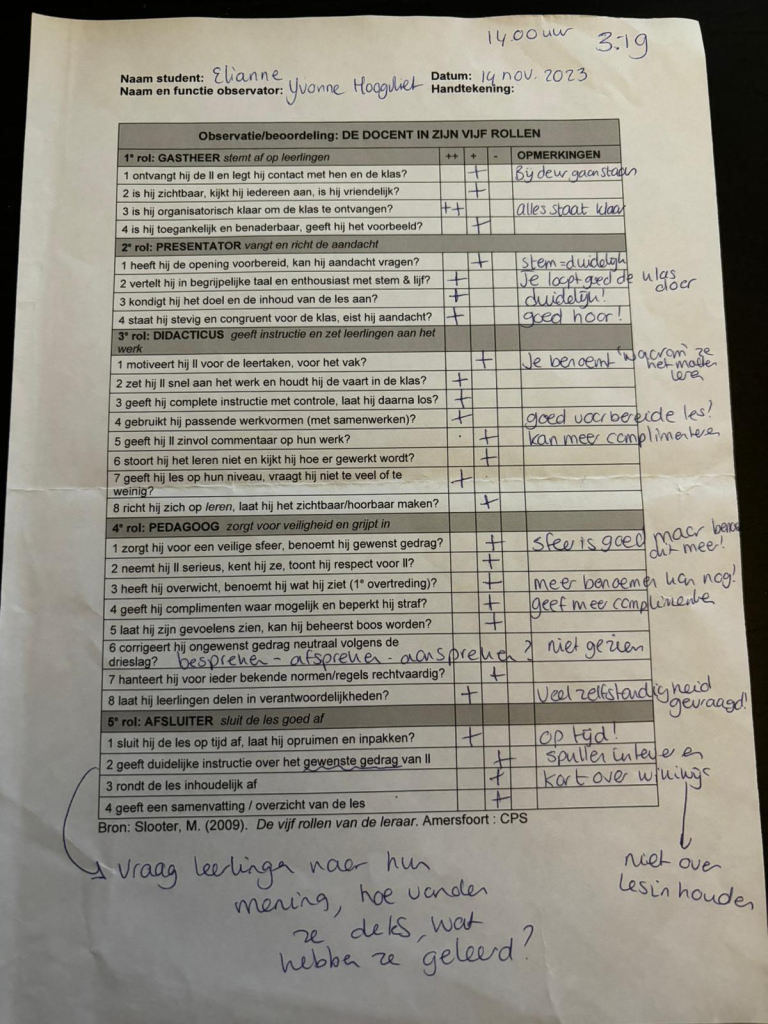 14.00 uur 3.19
Naam student: Elianne Datum: 14 nov. 2023
Naam en functie observator: Yvonne Hoogvliet Handtekening:
Observatie/beoordeling: DE DOCENT IN ZIJN VIJF ROLLEN
1e rol: GASTHEER stemt af op leerlingen ++ + - OPMERKINGEN
1 ontvangt hij de ll en legt hij contact met hen en de klas? + Bij deur gaan staan
2 is hij zichtbaar, kijkt hij iedereen aan, is hij vriendelijk? +
3 is hij organisatorisch klaar om de klas te ontvangen? ++ alles staat klaar
4 is hij toegankelijk en benaderbaar, geeft hij het voorbeeld? +
2e rol: PRESENTATOR vangt en richt de aandacht
1 heeft hij de opening voorbereid, kan hij aandacht vragen? + stem = duidelijk
2 vertelt hij in begrijpelijke taal en enthousiast met stem & lijf? + Je loopt goed de klas door
3 kondigt hij het doel en de inhoud van de les aan? + duidelijk!
4 staat hij stevig en congruent voor de klas, eist hij aandacht? + goed hoor!
3e rol: DIDACTICUS geeft instructie en zet leerlingen aan het
werk
1 motiveert hij ll voor de leertaken, voor het vak? + Je benoemt 'waarom' ze
het moeten
leren
2 zet hij ll snel aan het werk en houdt hij de vaart in de klas? +
3 geeft hij complete instructie met controle, laat hij daarna los? +
4 gebruikt hij passende werkvormen (met samenwerken)? + goed voorbereide les!
5 geeft hij ll zinvol commentaar op hun werk? + kan meer complimenteren
6 stoort hij het leren niet en kijkt hij hoe er gewerkt wordt? +
7 geeft hij les op hun niveau, vraagt hij niet te veel of te
weinig? +
8 richt hij zich op leren, laat hij het zichtbaar/hoorbaar maken? +
4e rol: PEDAGOOG zorgt voor veiligheid en grijpt in
1 zorgt hij voor een veilige sfeer, benoemt hij gewenst gedrag? + sfeer is goed maar benoe
dit meer!
2 neemt hij ll serieus, kent hij ze, toont hij respect voor ll? +
3 heeft hij overwicht, benoemt hij wat hij ziet (1e overtreding)? + meer benoemen kan nog!
4 geeft hij complimenten waar mogelijk en beperkt hij straf? + geef meer complimenten
5 laat hij zijn gevoelens zien, kan hij beheerst boos worden? +
6 corrigeert hij ongewenst gedrag neutraal volgens de
drieslag? bespreken - afspreken - aanspreken ? niet gezien
7 hanteert hij voor ieder bekende normen/regels rechtvaardig? +
8 laat hij leerlingen delen in verantwoordelijkheden? + veel zelfstandigheid
gevraagd!
5e rol: AFSLUITER sluit de les goed af
1 sluit hij de les op tijd af, laat hij opruimen en inpakken? + op tijd!
2 geeft duidelijke instructie over het gewenste gedrag van ll + spullen inleveren
3 rondt de les inhoudelijk af + kort over
4 geeft een samenvatting / overzicht van de les +
Bron: Slooter, M. (2009). De vijf rollen van de leraar. Amersfoort : CPS
niet over
lesinhouden
Vraag leerlingen naar hun
mening, hoe vonden
ze de les, wat
hebben ze geleerd?